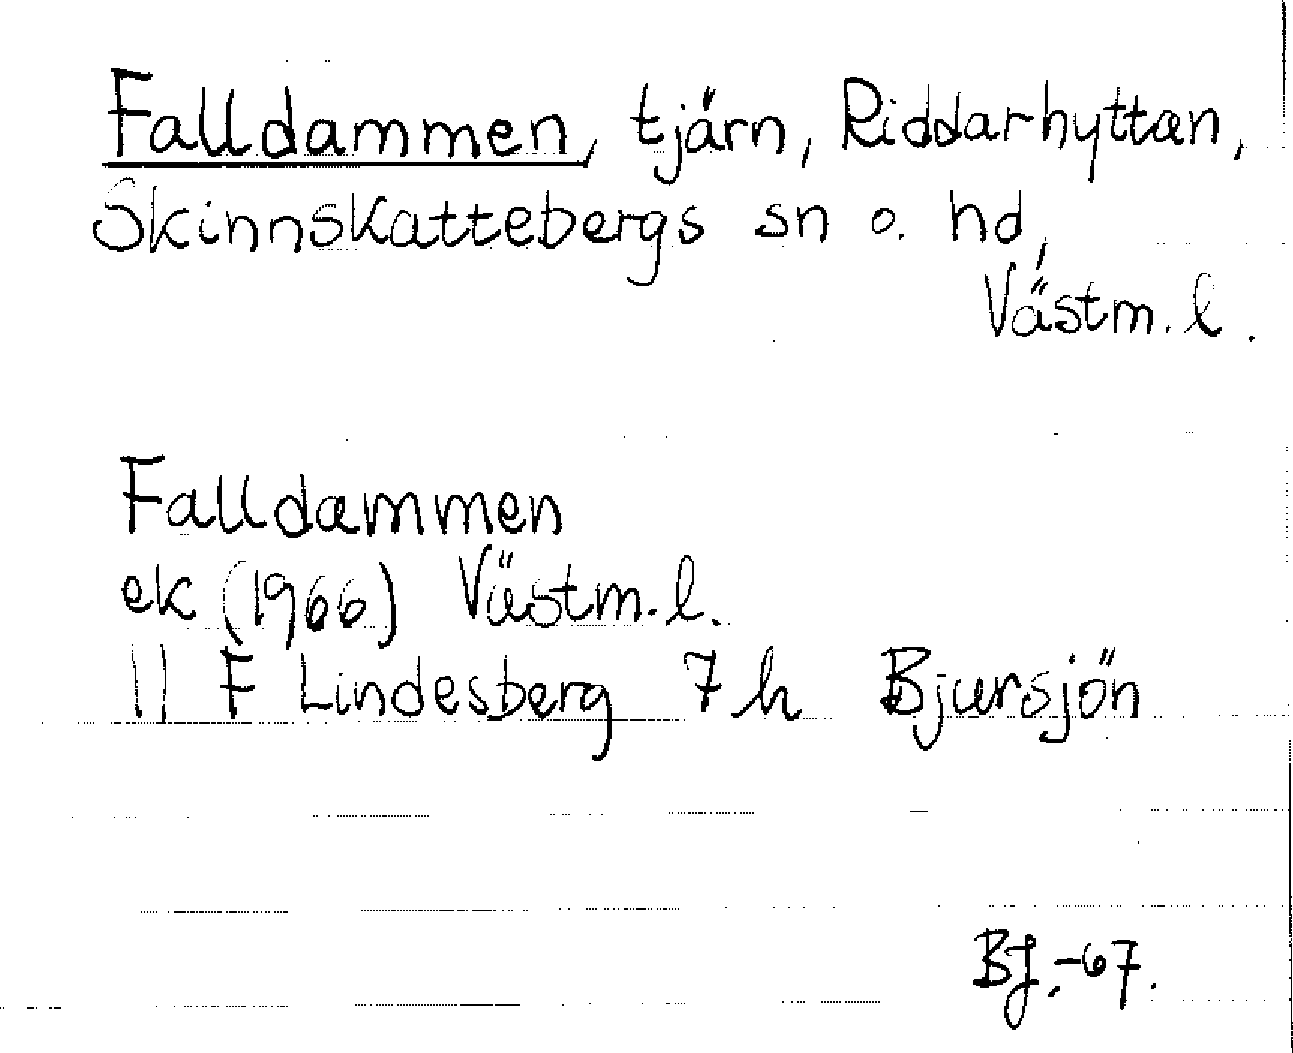 Falldammen, tjärn, Riddarhyttan,
Skinnskattebergs sn o. hd,
Västm. l.
Falldammen
ek (1966) Västm. l.
11 F Lindesberg 7 h Bjursjön
BJ.-67.